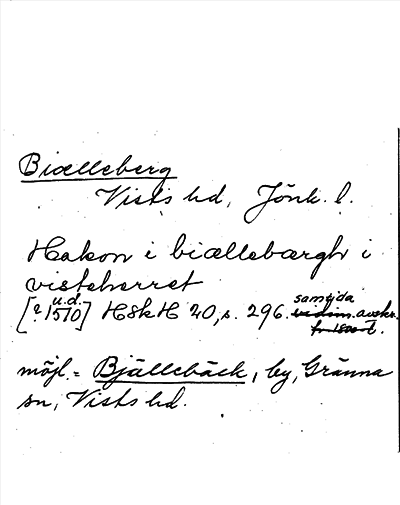 Biælleberg
Vists hd, Jönk. l.
Hakon i biællebærgh i
visteherret
[? u.d. 1510] HSkH 20, s. 296. samtida avskr.
möjl. = Bjällebäck, by, Gränna
sn, Vists hd.